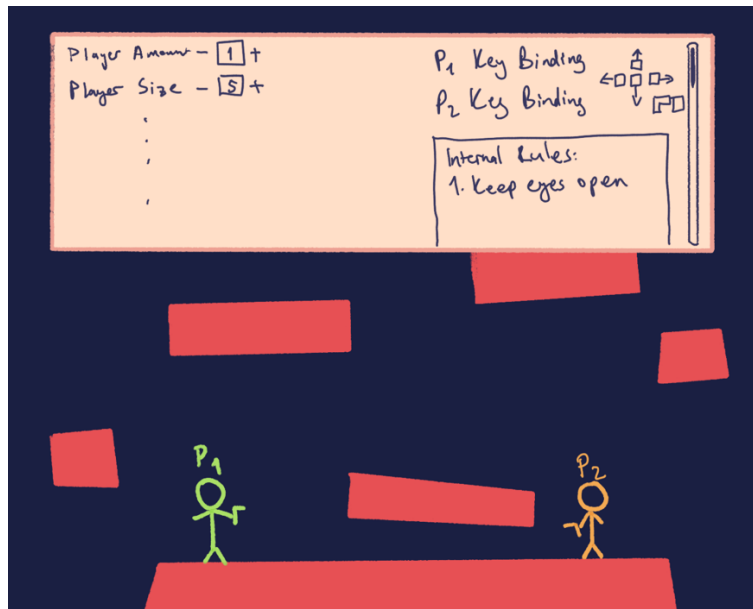 Player Amount - 1 +
Player Size - 5 +
P1 Key Binding
P2 Key Binding
Internal Rules:
1. Keep eyes open
P1
P2